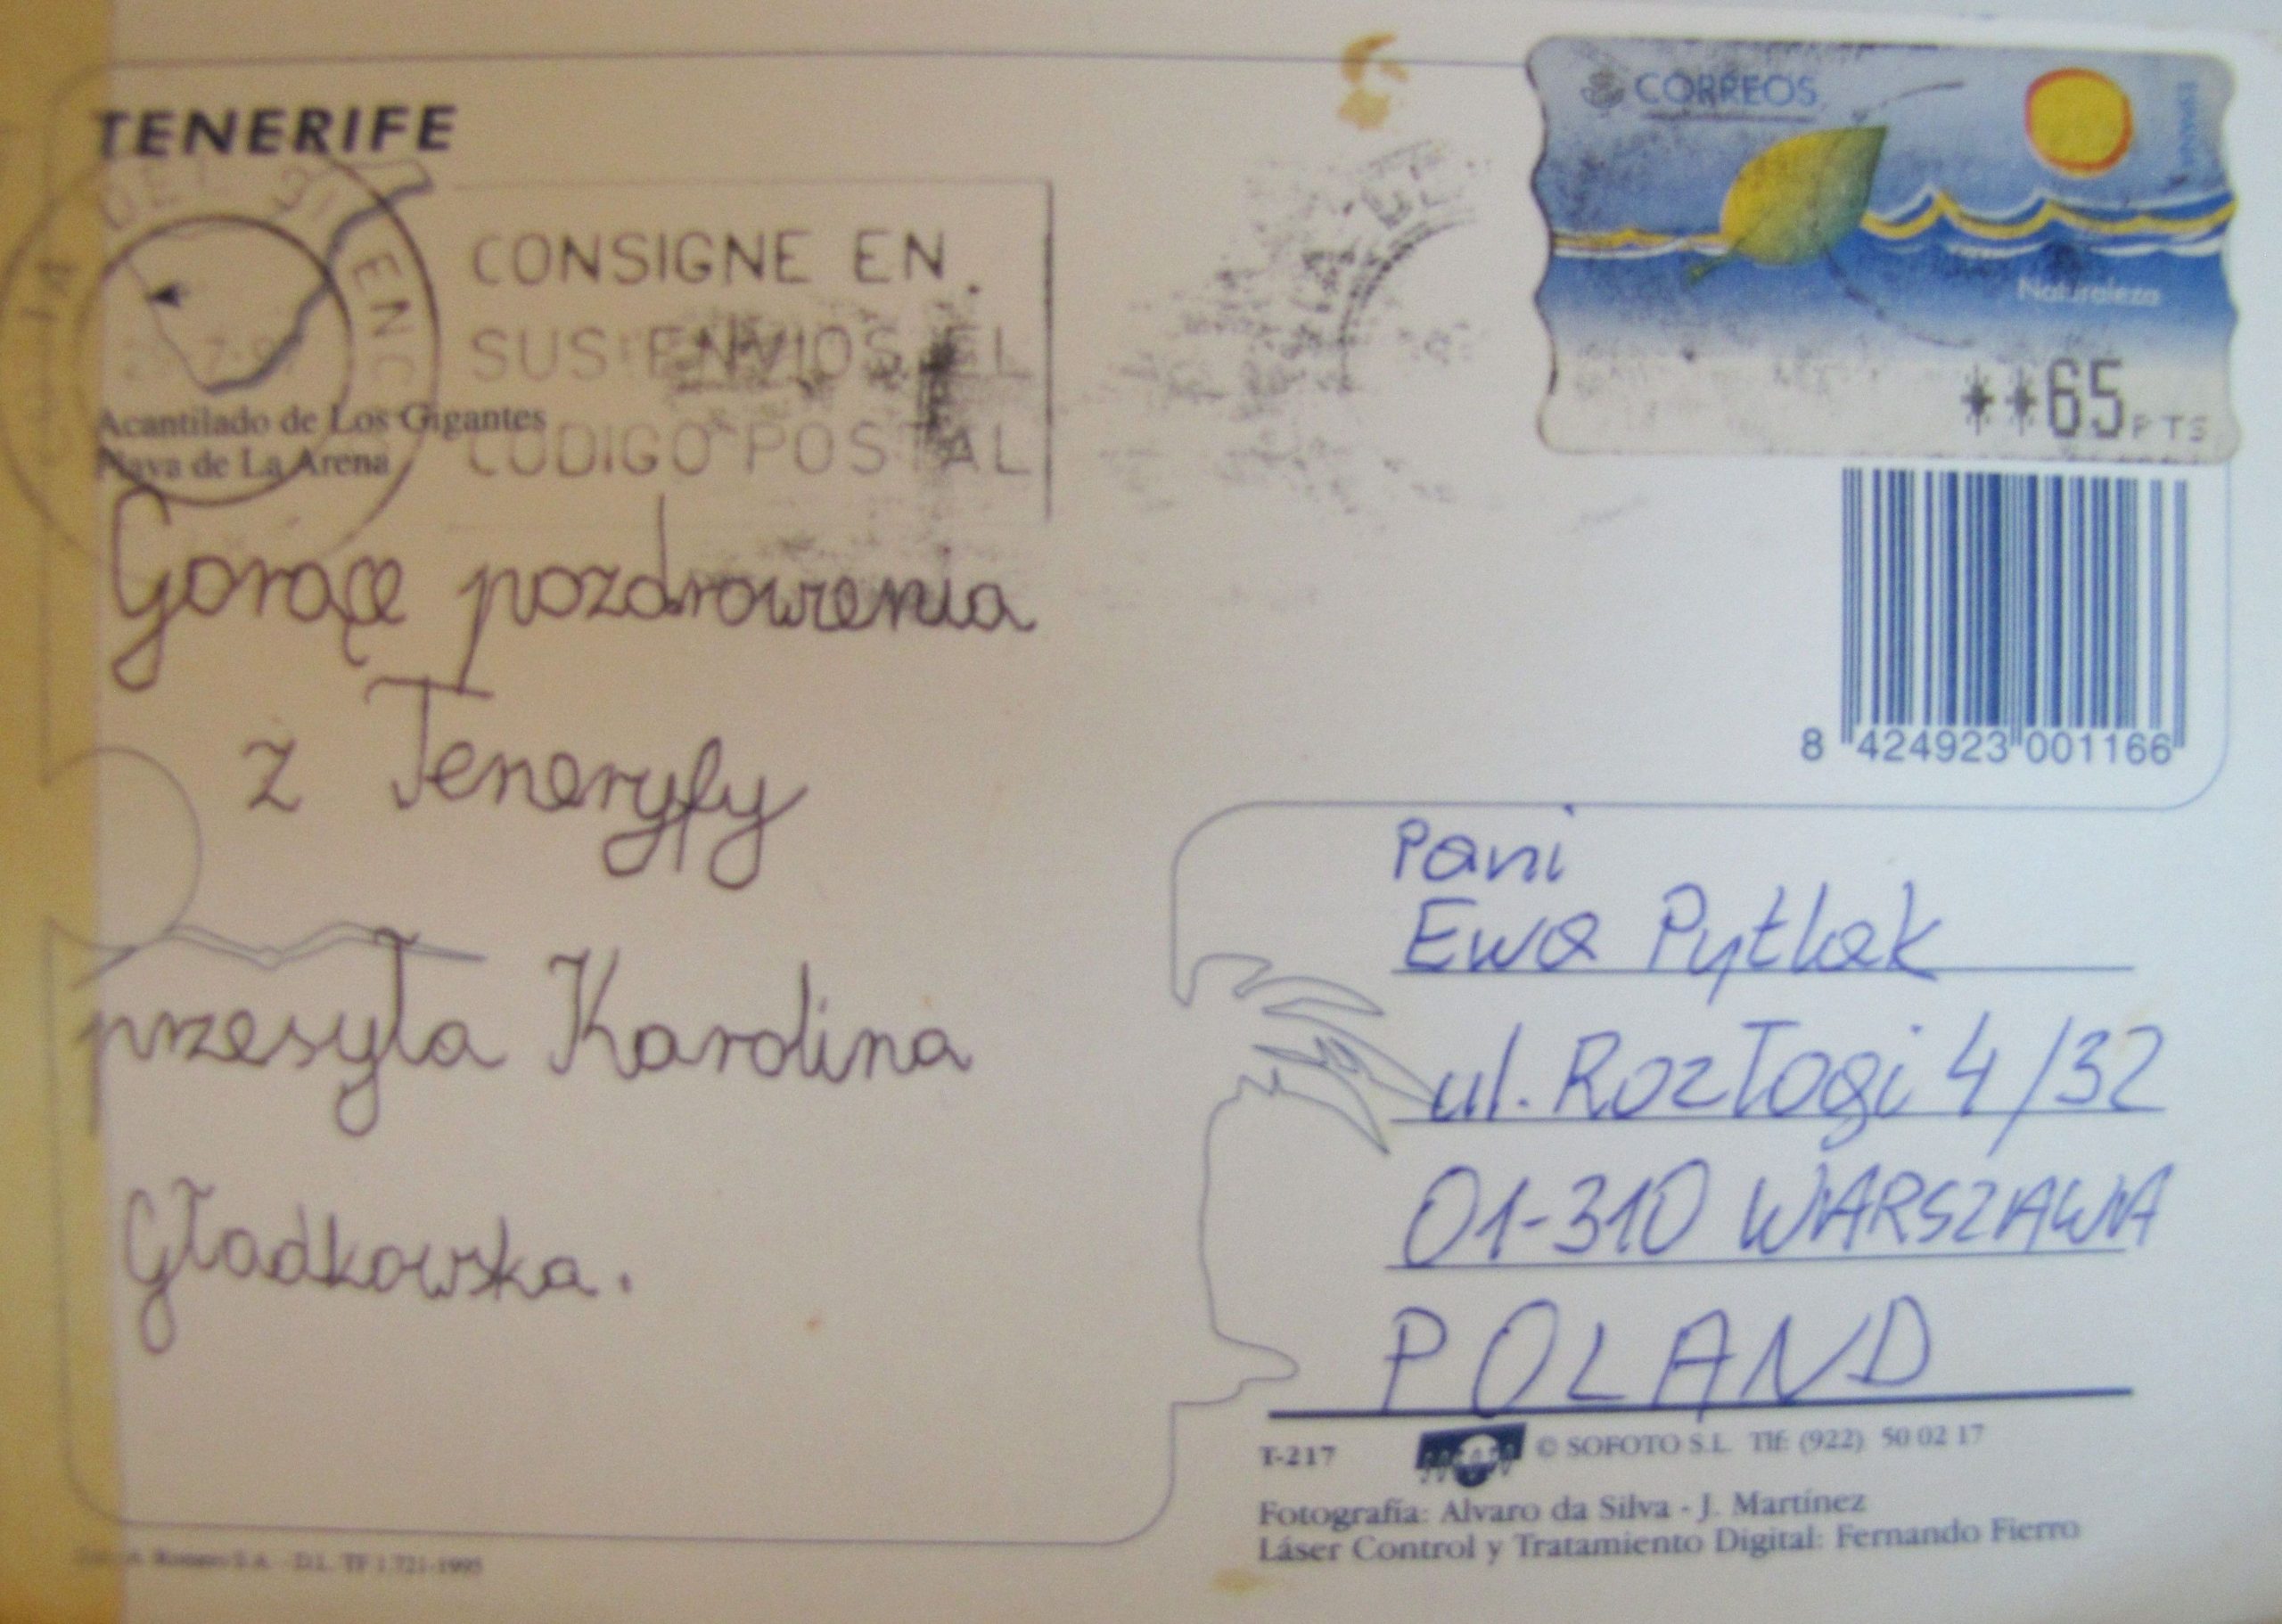 TENERIFE
CONSIGNE EN
SUS ENVIOS EL
CODIGO POSTAL
Acantilado de Los Gigantes
Playa de La Arena
Gorące pozdrowienia
z Teneryfy
przesyła Karolina
Gładkowska.
CORREOS
Naturaleza
**65 PTS
8 424923 001166
Pani
Ewa Pytlak
ul. Rozłogi 4/32
01-310 WARSZAWA
POLAND
T-217
© SOFOTO S.L. Tlf: (922) 50 02 17
Fotografía: Alvaro da Silva - J. Martínez
Láser Control y Tratamiento Digital: Fernando Fierro
Romero S.A. - D.L. TF 1.721-1995